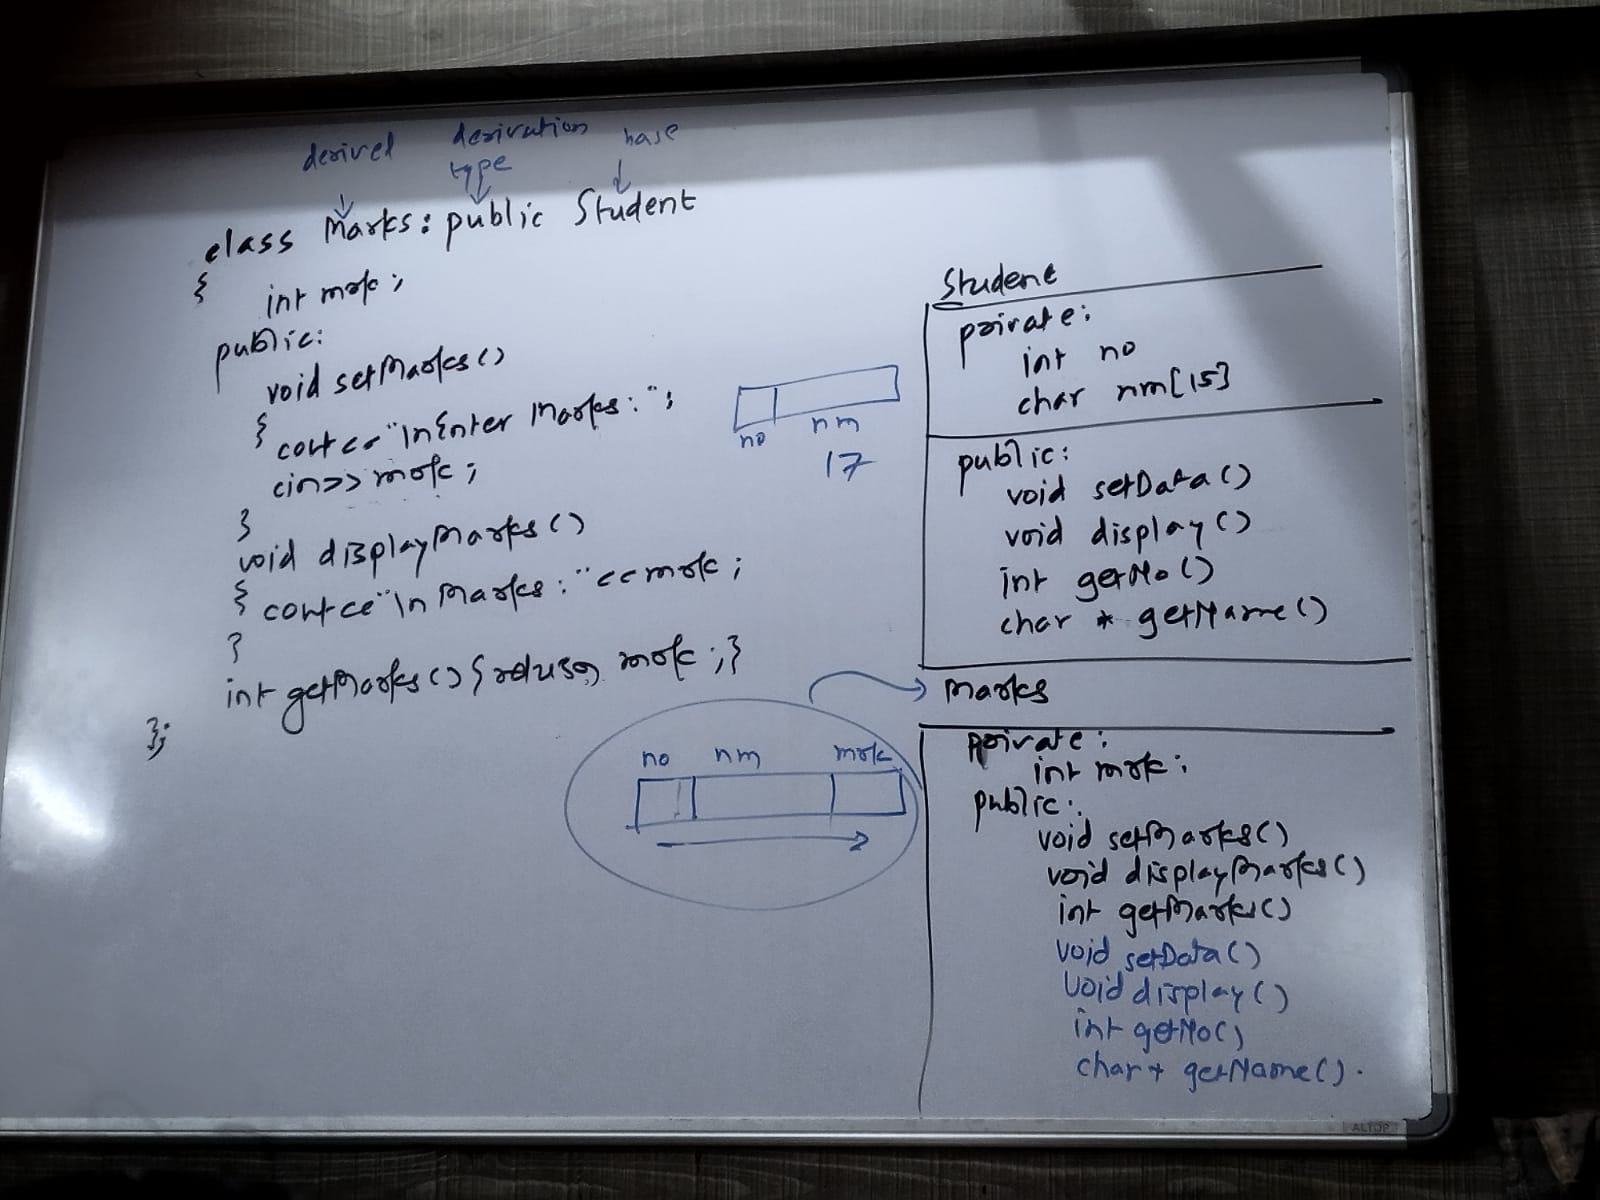 derived derivation base
type
class Marks: public Student
{
int mrk;
public:
void setMarks()
{
cout<<"\nEnter Marks:";
cin>>mrk;
}
void displayMarks()
{ cout<<"\n Marks:"<<mrk;
}
int getMarks(){return mrk;}
};
no nm
17
no nm mrk
Student
private:
int no
char nm[15]
public:
void setData()
void display()
int getNo()
char * getName()
Marks
private:
int mrk;
public:
void setMarks()
void displayMarks()
int getMarks()
void setData()
void display()
int getNo()
char * getName().
ALTOP